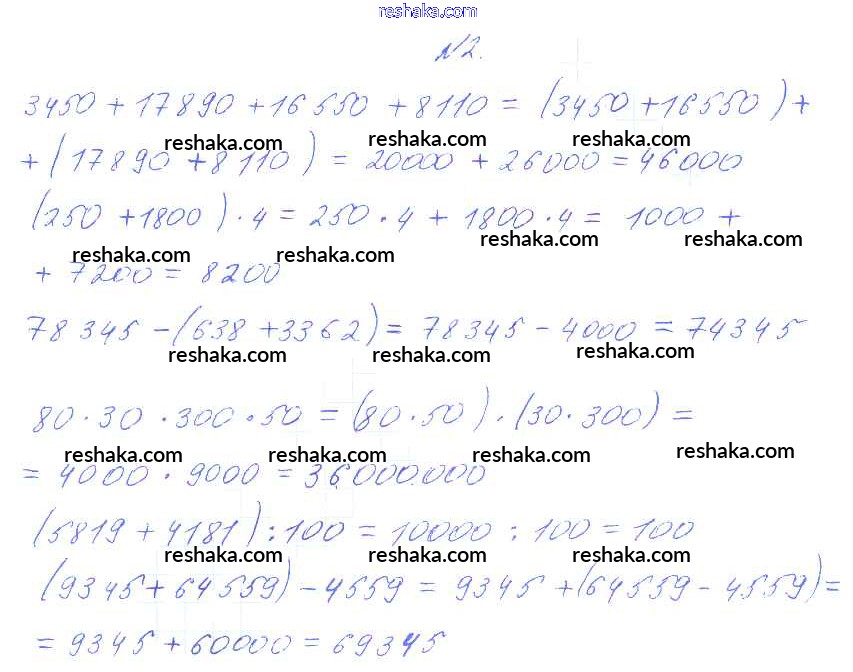 reshaka.com
№2.
3450 + 17890 + 16550 + 8110 = (3450 + 16550) +
reshaka.com reshaka.com reshaka.com
+ (17890 + 8110) = 20000 + 26000 = 46000
(250 + 1800) · 4 = 250 · 4 + 1800 · 4 = 1000 +
reshaka.com reshaka.com reshaka.com reshaka.com
+ 7200 = 8200
78 345 - (638 + 3362) = 78345 - 4000 = 74345
reshaka.com reshaka.com reshaka.com
80 · 30 · 300 · 50 = (80 · 50) · (30 · 300) =
reshaka.com reshaka.com reshaka.com reshaka.com
= 4000 · 9000 = 36000000
(5819 + 4181) : 100 = 10000 : 100 = 100
reshaka.com reshaka.com reshaka.com
(9345 + 64559) - 4559 = 9345 + (64559 - 4559) =
= 9345 + 60000 = 69345